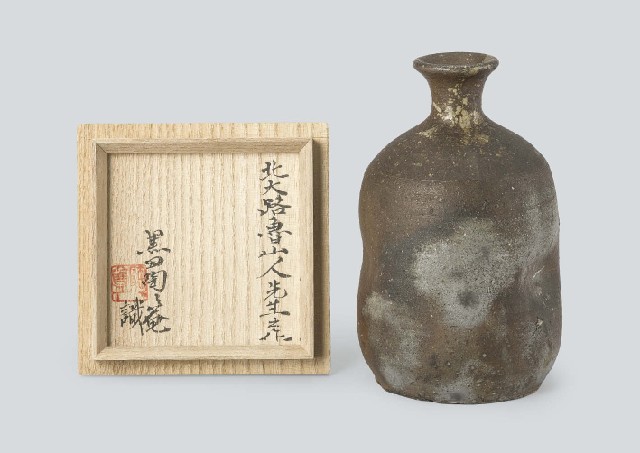 北大路魯山人先生作
黒田陶々菴識